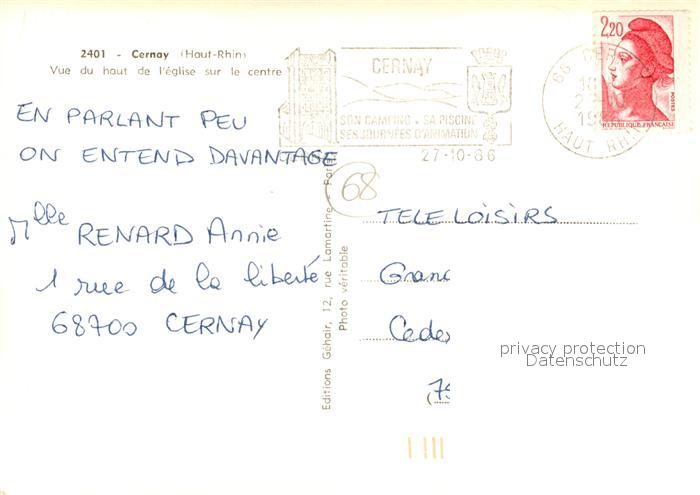 2401 - Cernay (Haut-Rhin)
Vue du haut de l'église sur le centre
CERNAY
SON CAMPING - SA PISCINE
SES JOURNÉES D'ANIMATION
27-10-86
2,20
POSTES
REPUBLIQUE FRANÇAISE
HAUT RHIN
EN PARLANT PEU
ON ENTEND DAVANTAGE
Mlle RENARD Annie
1 rue de la liberté
68700 CERNAY
Editions Géhair, 12, rue Lamartine -
Photo véritable
68
TELE LOISIRS
privacy protection
Datenschutz